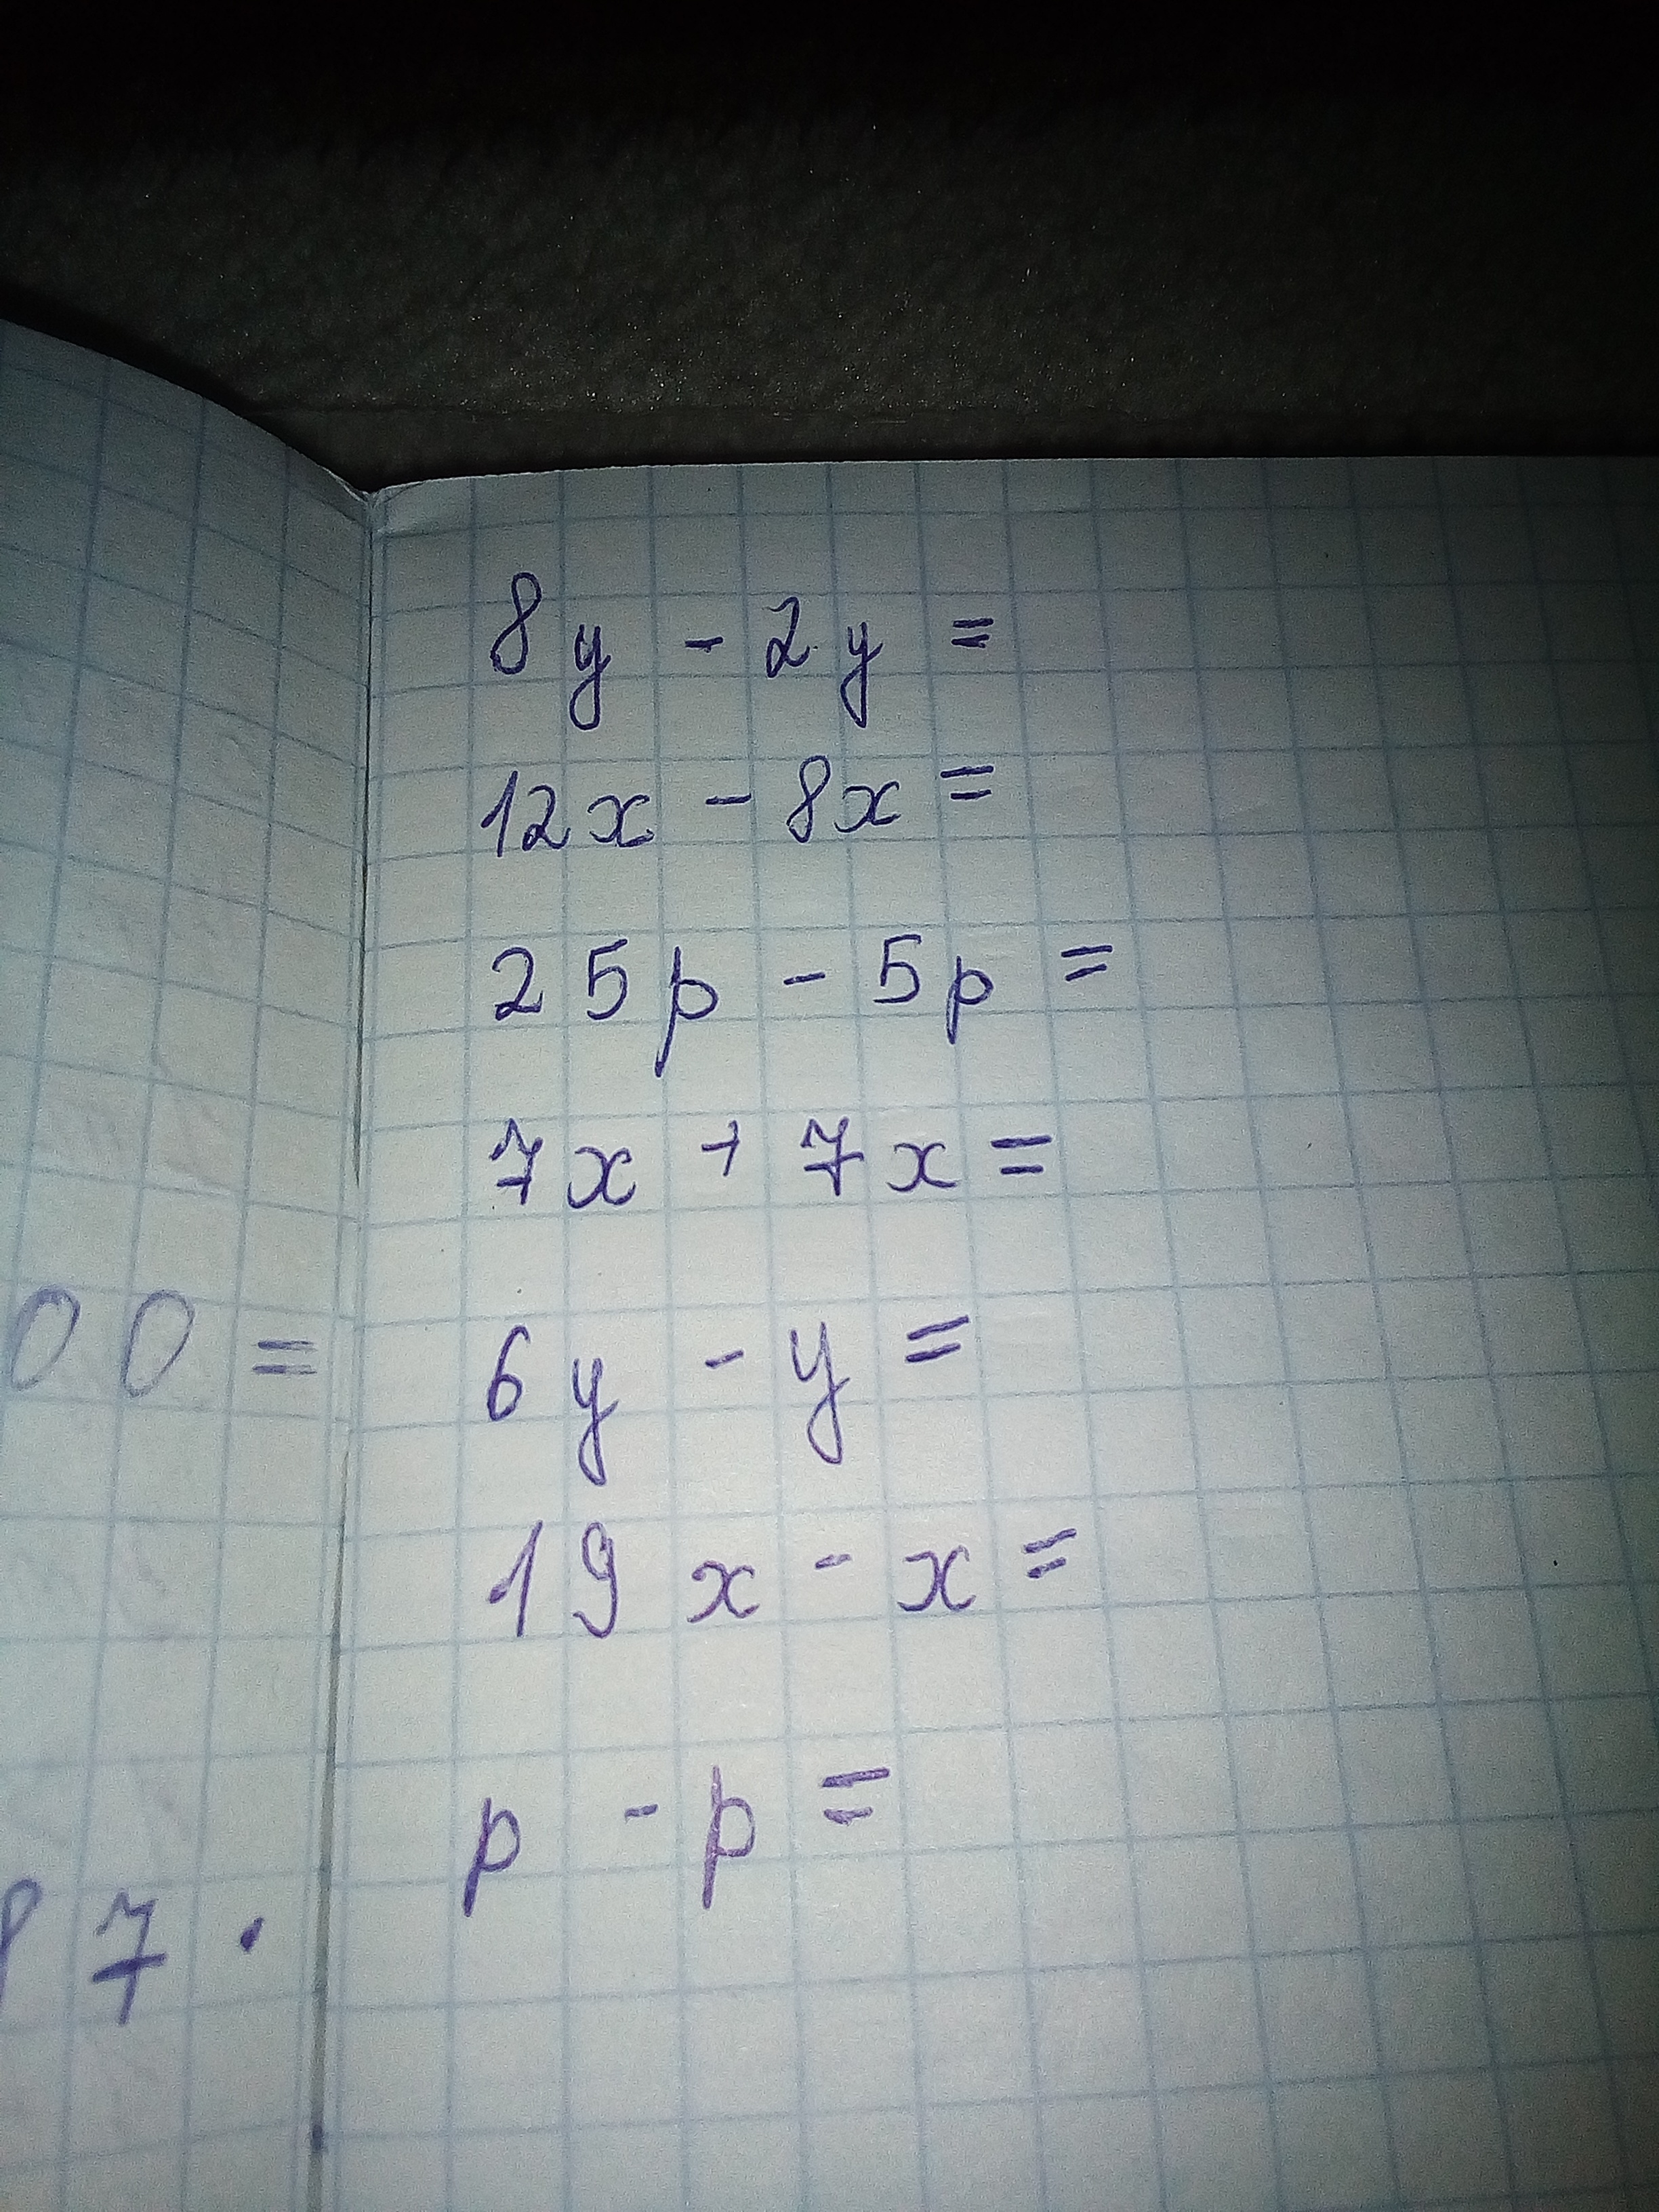 8y - 2y =
12x - 8x =
25p - 5p =
7x + 7x =
00 =
6y - y =
19x - x =
p - p =
87 ·